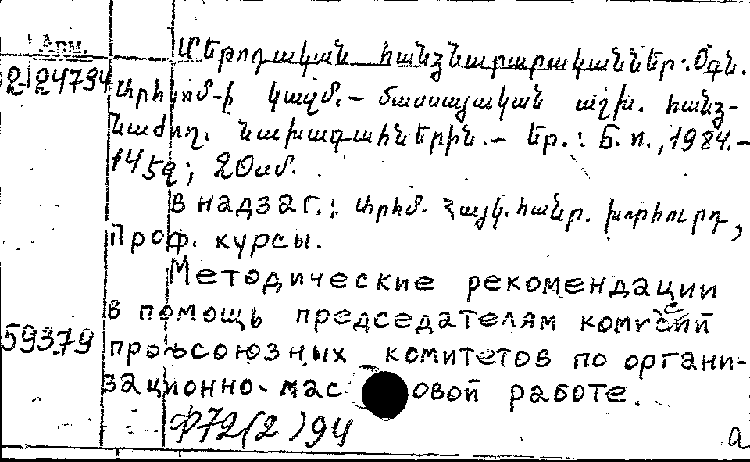 Арм.
Մեթոդական հանձնարարականներ: Օգն.
2-24794 արհկոմ-ի կազմ. – մասսայական աշխ. հանձ-
նաժող. նախագահներին. – Եր.: Б. и., 1984. –
145գ; 20սմ.
В надзаг.: Արհմ. Հայկ. հանր. խորհուրդ,
Проф. курсы.
Методические рекомендации
в помощь председателям комиссий
59379 профсоюзных комитетов по органи-
зационно-мас овой работе.
Ф72(2)94
а